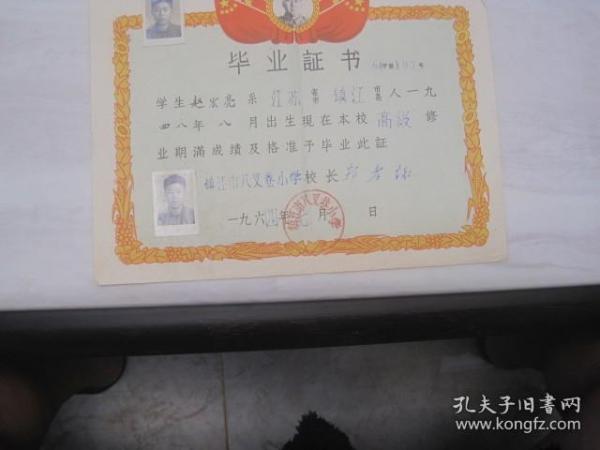 毕业証书
学生赵宏亮系江苏省市镇江市县人一九
四八年八月出生現在本校高級修
业期滿成績及格准予毕业此証
镇江市八叉巷小学校长
一九六四年七月日
孔夫子旧书网
www.kongfz.com